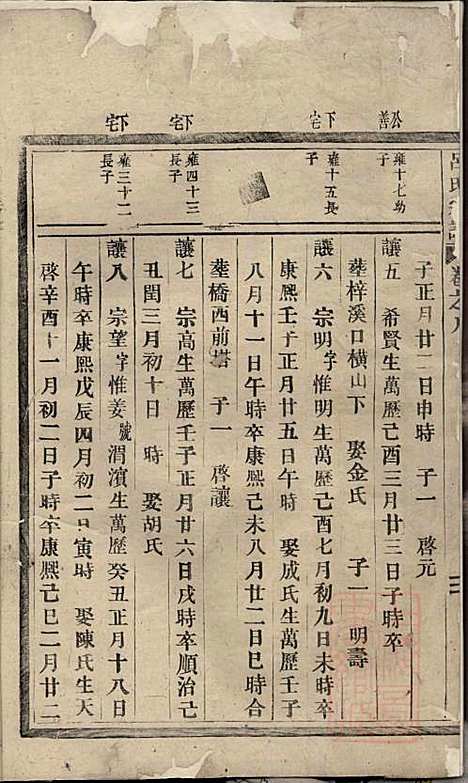 呂氏宗譜 卷之八
子正月廿二日申時 子一 啓元
公善
雍十七幼子
讓五 希賢生萬歷己酉三月廿三日子時卒
塟梓溪口橫山下 娶金氏 子一 明壽
下宅
雍十五長子
讓六 宗明字惟明生萬歷己酉七月初九日未時卒
康熙壬子正月廿五日午時 娶成氏生萬歷壬子
八月十一日午時卒康熙己未八月廿二日巳時合
塟橋西前塔 子一 啓讓
下宅
雍四十三長子
讓七 宗高生萬歷壬子正月廿六日戌時卒順治己
丑閏三月初十日 時 娶胡氏
下宅
雍三十二長子
讓八 宗望字惟姜號渭濱生萬歷癸丑正月十八日
午時卒康熙戊辰四月初二日寅時 娶陳氏生天
啓辛酉十一月初二日子時卒康熙己巳二月廿二